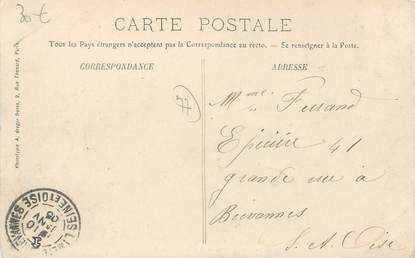 30 €
CARTE POSTALE
Tous les Pays étrangers n'acceptent pas la Correspondance au recto. — Se renseigner à la Poste.
CORRESPONDANCE
ADRESSE
77
Mme Fessand
Epicière 41
grande rue à
Brévannes
S. et Oise
Phototypie A. Breger frères, 9, Rue Thénard, Paris.
SEINE ET OISE
10
JANV
05